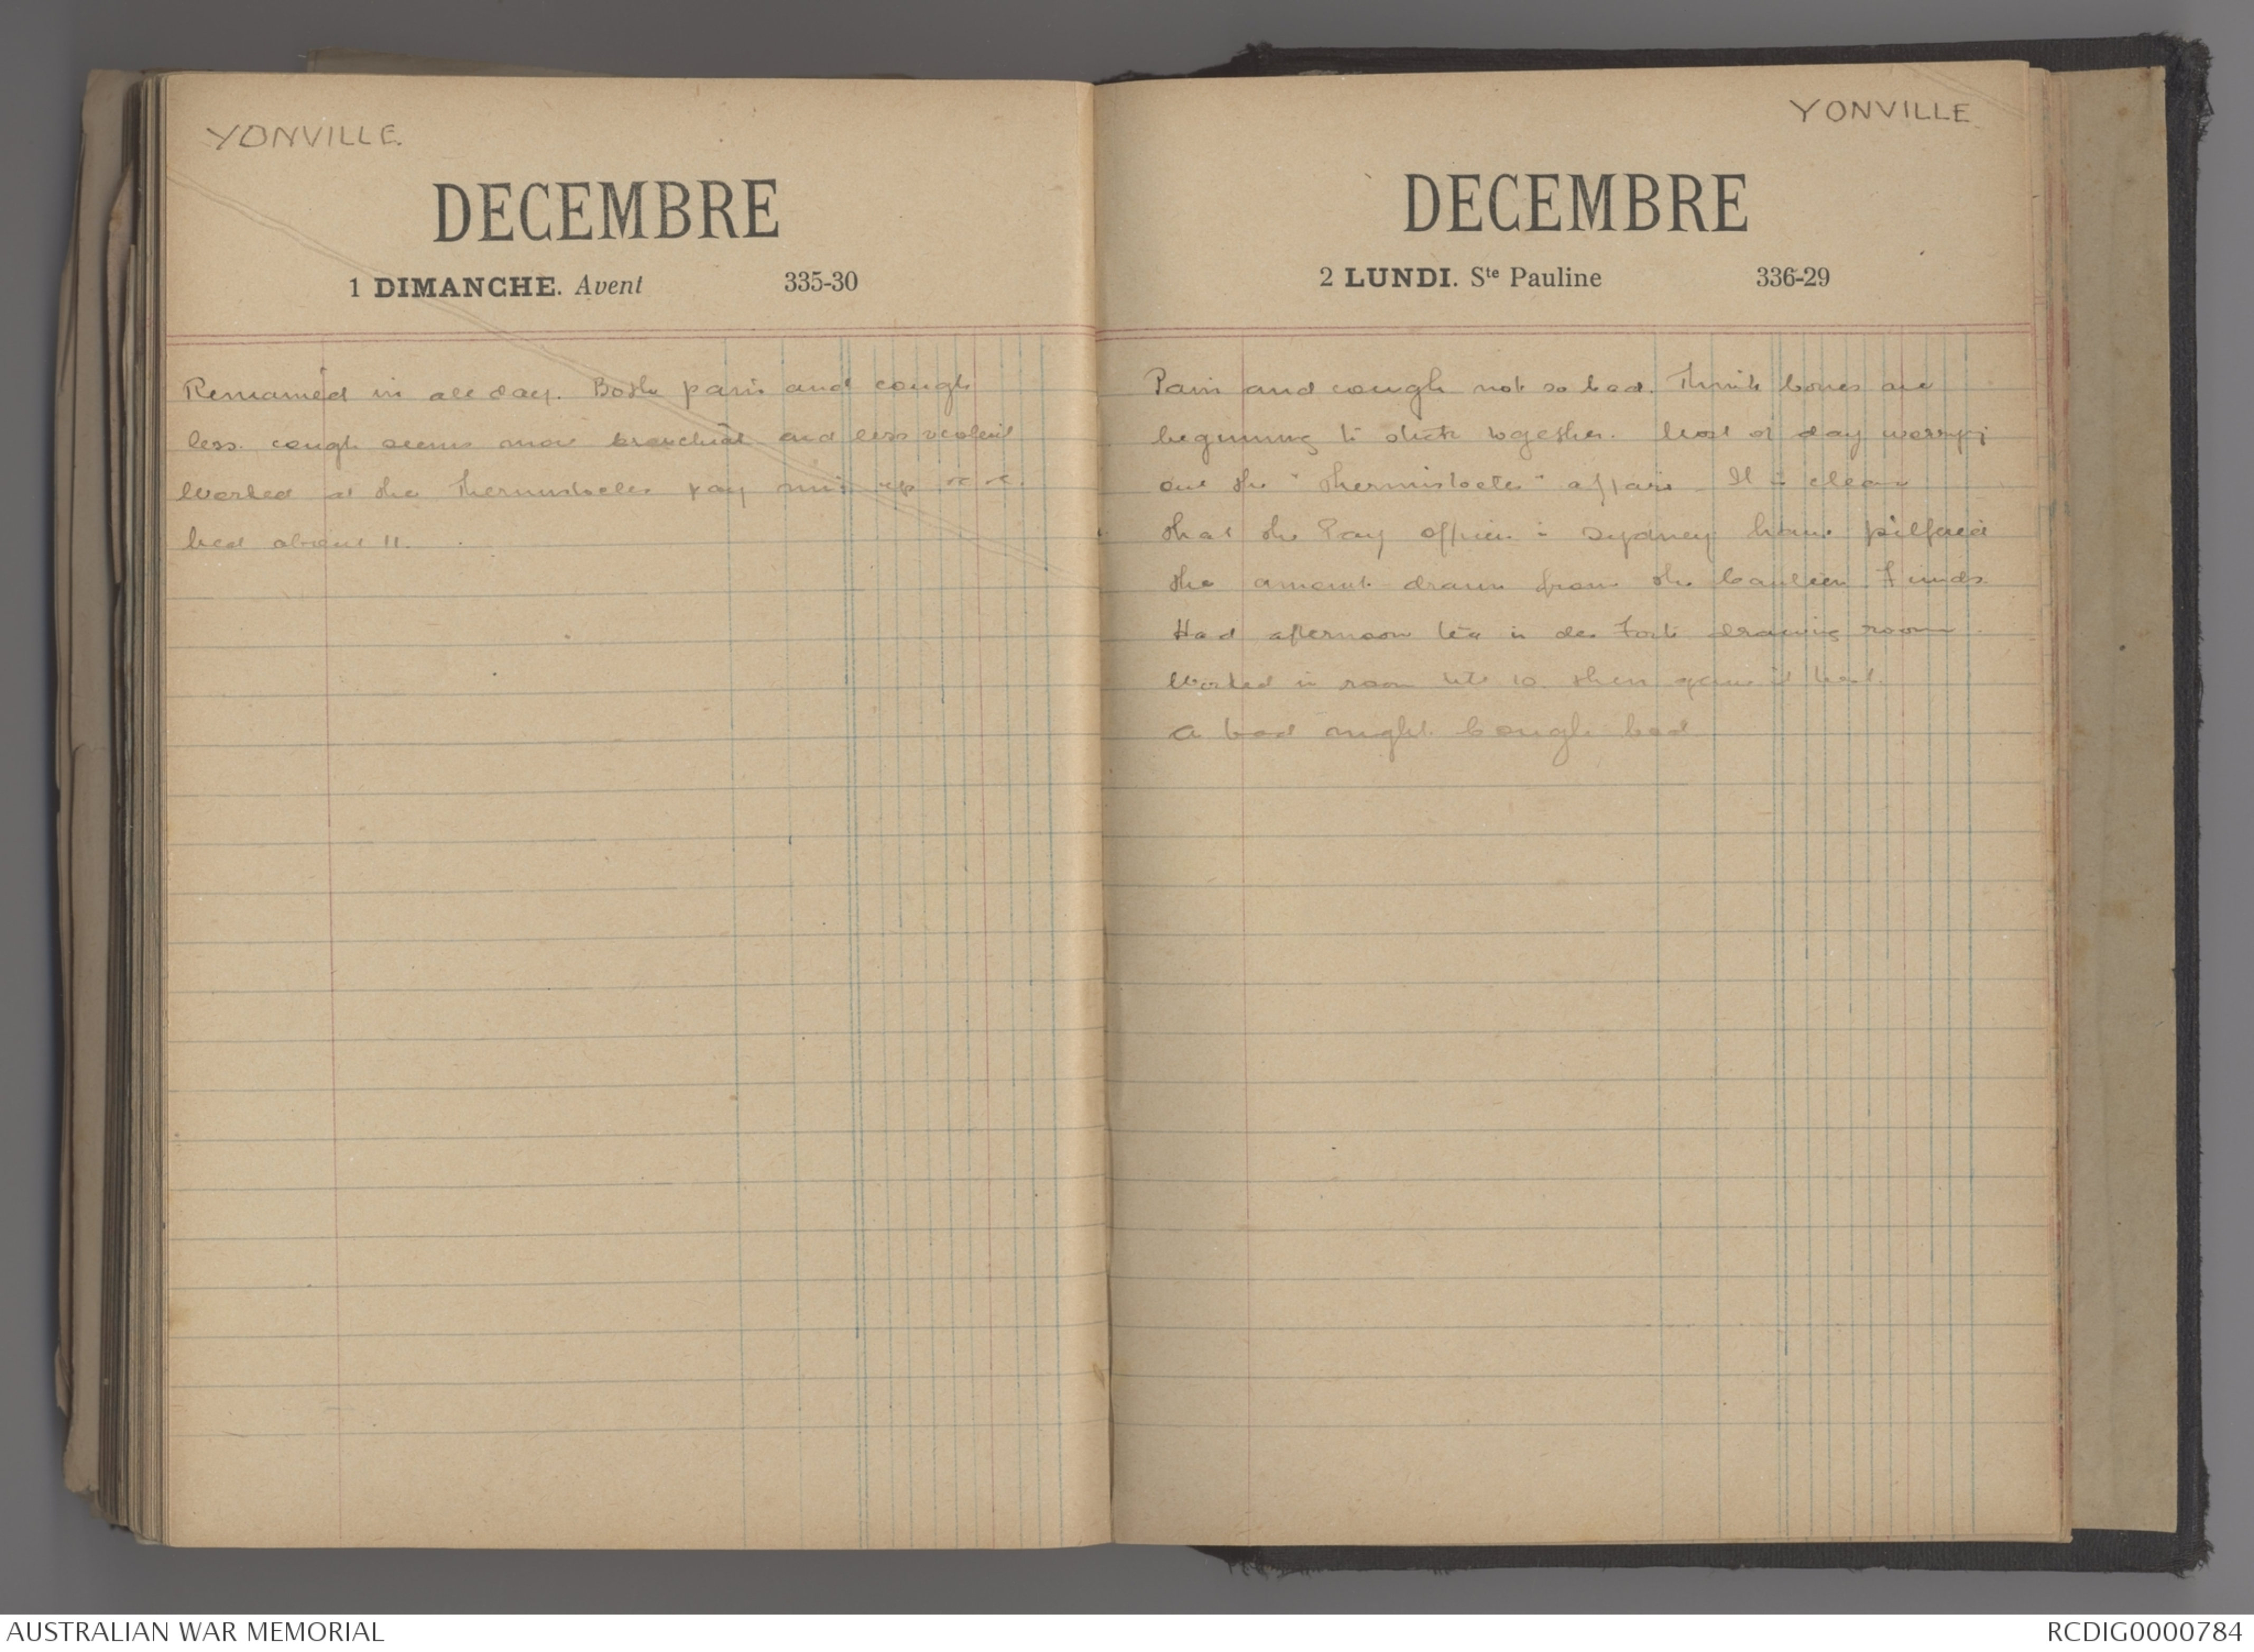 YONVILLE.
DECEMBRE
1 DIMANCHE. Avent 335-30
Remained in all day. Both pain and cough
less. cough seems more bronchial and less violent
Worked at the Themistocles pay mix up
bed about 11.
YONVILLE.
DECEMBRE
2 LUNDI. Ste Pauline 336-29
Pain and cough not so bad. Think bones are
beginning to stick together. Most of day worrying
out the "Themistocles" affair. It is clear
that the Pay officer in Sydney have pilfered
the amount drawn from the Canteen Funds
Had afternoon tea in des Forts drawing room.
Worked in room till 10 then gave it best.
A bad night. Cough bad
AUSTRALIAN WAR MEMORIAL
RCDIG0000784